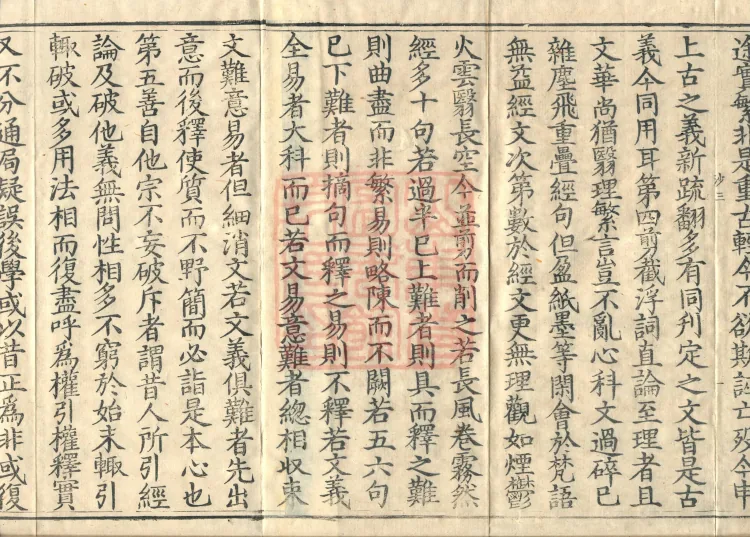 途實繁非是重古輕今不欲亡殁今申
上古之義新疏翻多有同刋定之文皆是古
義今同用耳第四剪截浮詞直論至理者且
文華尚猶翳理繁言豈不亂心科文過碎已
雜塵飛重疊經句但盈紙墨等閑會於梵語
無益經文次第數於經文更無理觀如煙鬱
火雲翳長空今並剪而削之若長風卷霧然
經多十句若過半已上難者則具而釋之難
則曲盡而非繁易則略陳而不闕若五六句
已下難者則摘句而釋之易則不釋若文義
全易者大科而已若文易意難者緫相収束
文難意易者但細消文若文義俱難者先出
意而後釋使質而不野簡而必詣是本心也
第五善自他宗不妄破斥者謂昔人所引經
論及破他義無問性相多不窮於始末輙引
輙破或多用法相而復盡呼爲權引權釋實
又不分通局疑誤後學或以昔正爲非或復